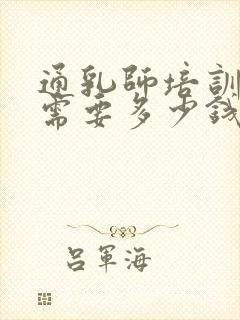 通乳師培訓
需要多少錢
呂軍海